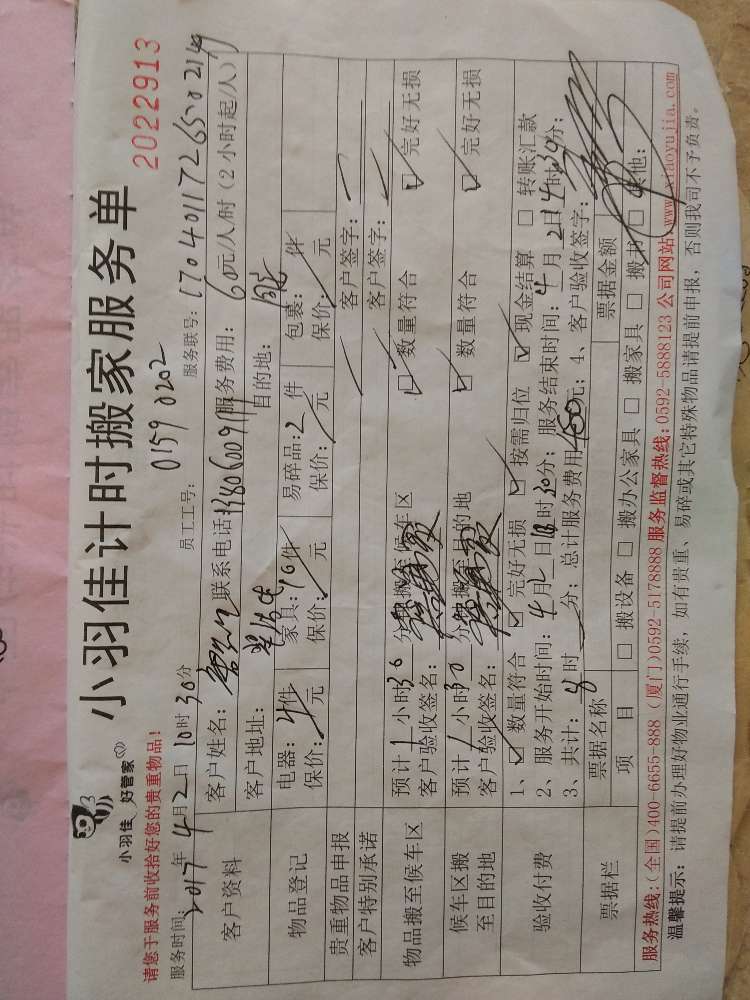 小羽佳 好管家
小羽佳计时搬家服务单
2022913
请您于服务前收拾好您的贵重物品!
员工工号: 0159 0202
服务时间: 2017年4月2日10时30分 服务联号:
客户资料 客户姓名: 联系电话 服务费用: 60元/人/时(2小时起/人)
客户地址: 目的地:
物品登记 电器: 4件 家具: 件 易碎品: 2件 包裹: 件
保价: 元 保价: 元 保价: 元 保价: 元
贵重物品申报 客户签字:
客户特别承诺 客户签字:
物品搬至候车区 预计1小时30分钟搬至候车区
客户验收签名: 数量符合 完好无损
候车区搬至目的地 预计1小时30分钟搬至目的地
客户验收签名: 数量符合 完好无损
验收付费 1、数量符合 完好无损 按需归位 现金结算 转账汇款
2、服务开始时间: 4月2日 时30分; 服务结束时间: 4月2日 时30分;
3、共计: 8时 分; 总计服务费用480元; 4、客户验收签字:
票据栏 票据名称 票据金额
项目 搬设备 搬办公家具 搬家具 搬书 其他:
服务热线:(全国)400-6655-888 (厦门)0592-5178888 服务监督热线:0592-5888123 公司网站:www.xiaoyujia.com
温馨提示: 请提前办理好物业通行手续, 如有贵重、易碎或其它特殊物品请提前申报, 否则我司不予负责。